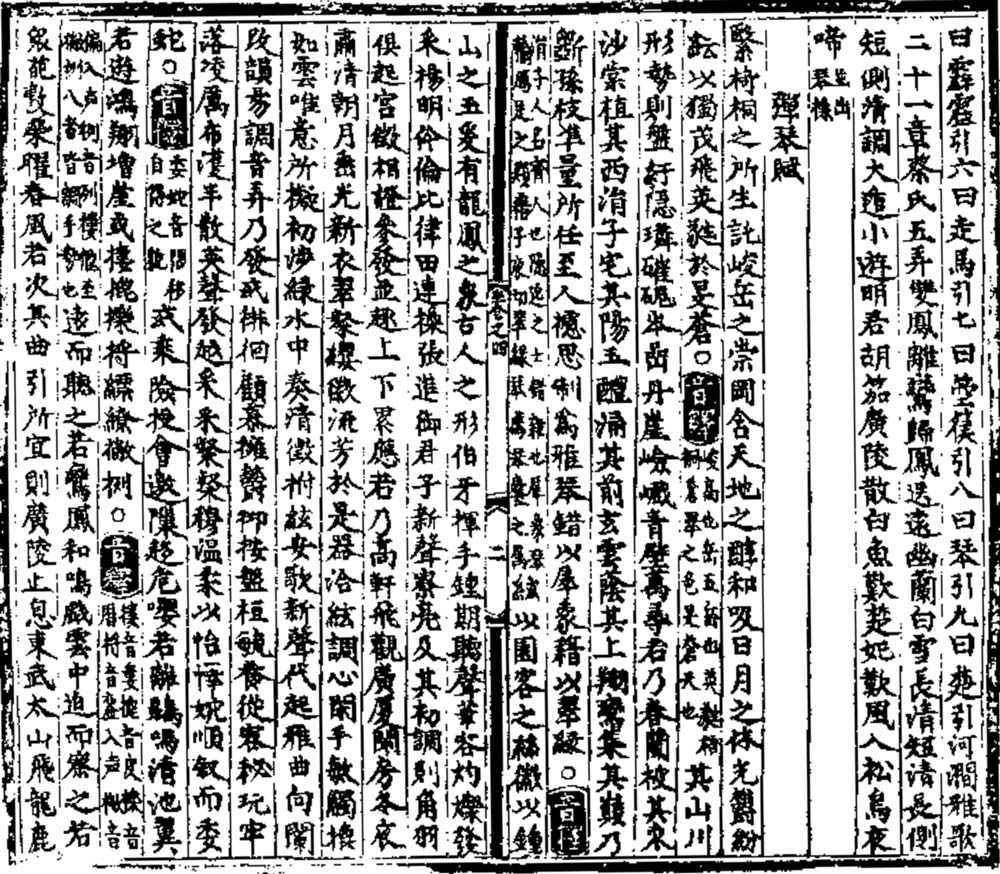 曰霹靂引六曰走馬引七曰箜篌引八曰琴引九曰楚引河澗雅歌
二十一章蔡氏五弄雙鳳離鸞歸鳳送遠幽蘭白雪長清短清長側
短側清調大遊小遊明君胡笳廣陵散白魚歎楚妃歎風入松烏夜
啼並出琴操
彈琴賦
惟椅桐之所生託峻岳之崇岡含天地之醇和吸日月之休光鬱紛
紜以獨茂飛英蕤於昊蒼○音釋峻高也岳五岳也英蕤椅桐蒼翠之色昊蒼天也其山川
形勢則盤紆隱 崔嵬岑嵒丹崖嶮巇青壁萬尋若乃春蘭被其東
沙棠植其西涓子宅其陽玉醴涌其前玄雲蔭其上翔鸞集其巔乃
斲孫枝準量所任至人攄思制為雅琴錯以犀象籍以翠綠○音釋
涓子人名齊人也隱逸之士錯雜也犀象 以園客之絲徽以鍾
山之玉爰有龍鳳之象古人之形伯牙揮手鍾期聽聲華容灼爍發
采揚明伶倫比律田連操張進御君子新聲憀亮及其初調則角羽
俱起宮徵相證參發並趣上下累應若乃高軒飛觀廣廈閑房冬夜
肅清朗月垂光新衣翠粲纓徽流芳於是器泠絃調心閑手敏觸攙
如雲唯意所擬初涉綠水中奏清徵拊絃安歌新聲代起雅曲向闌
改韻易調音弄乃發或徘徊顧慕擁鬱抑按盤桓毓養從容秘玩牢
落凌厲布濩半散英聲發越采采粲粲穆溫柔以怡懌婉順敘而委
蛇○音釋委蛇音 移自得之貌或乘險投會邀隙趨危嚶若離鵾鳴清池翼
若遊鴻翔增崖或摟 擽捋縹繚潎冽○音釋摟音婁
皆調手勢也遠而聽之若鸞鳳和鳴戲雲中迫而察之若
眾葩敷榮曜春風若次其曲引所宜則廣陵止息東武太山飛龍鹿
卷之四
二